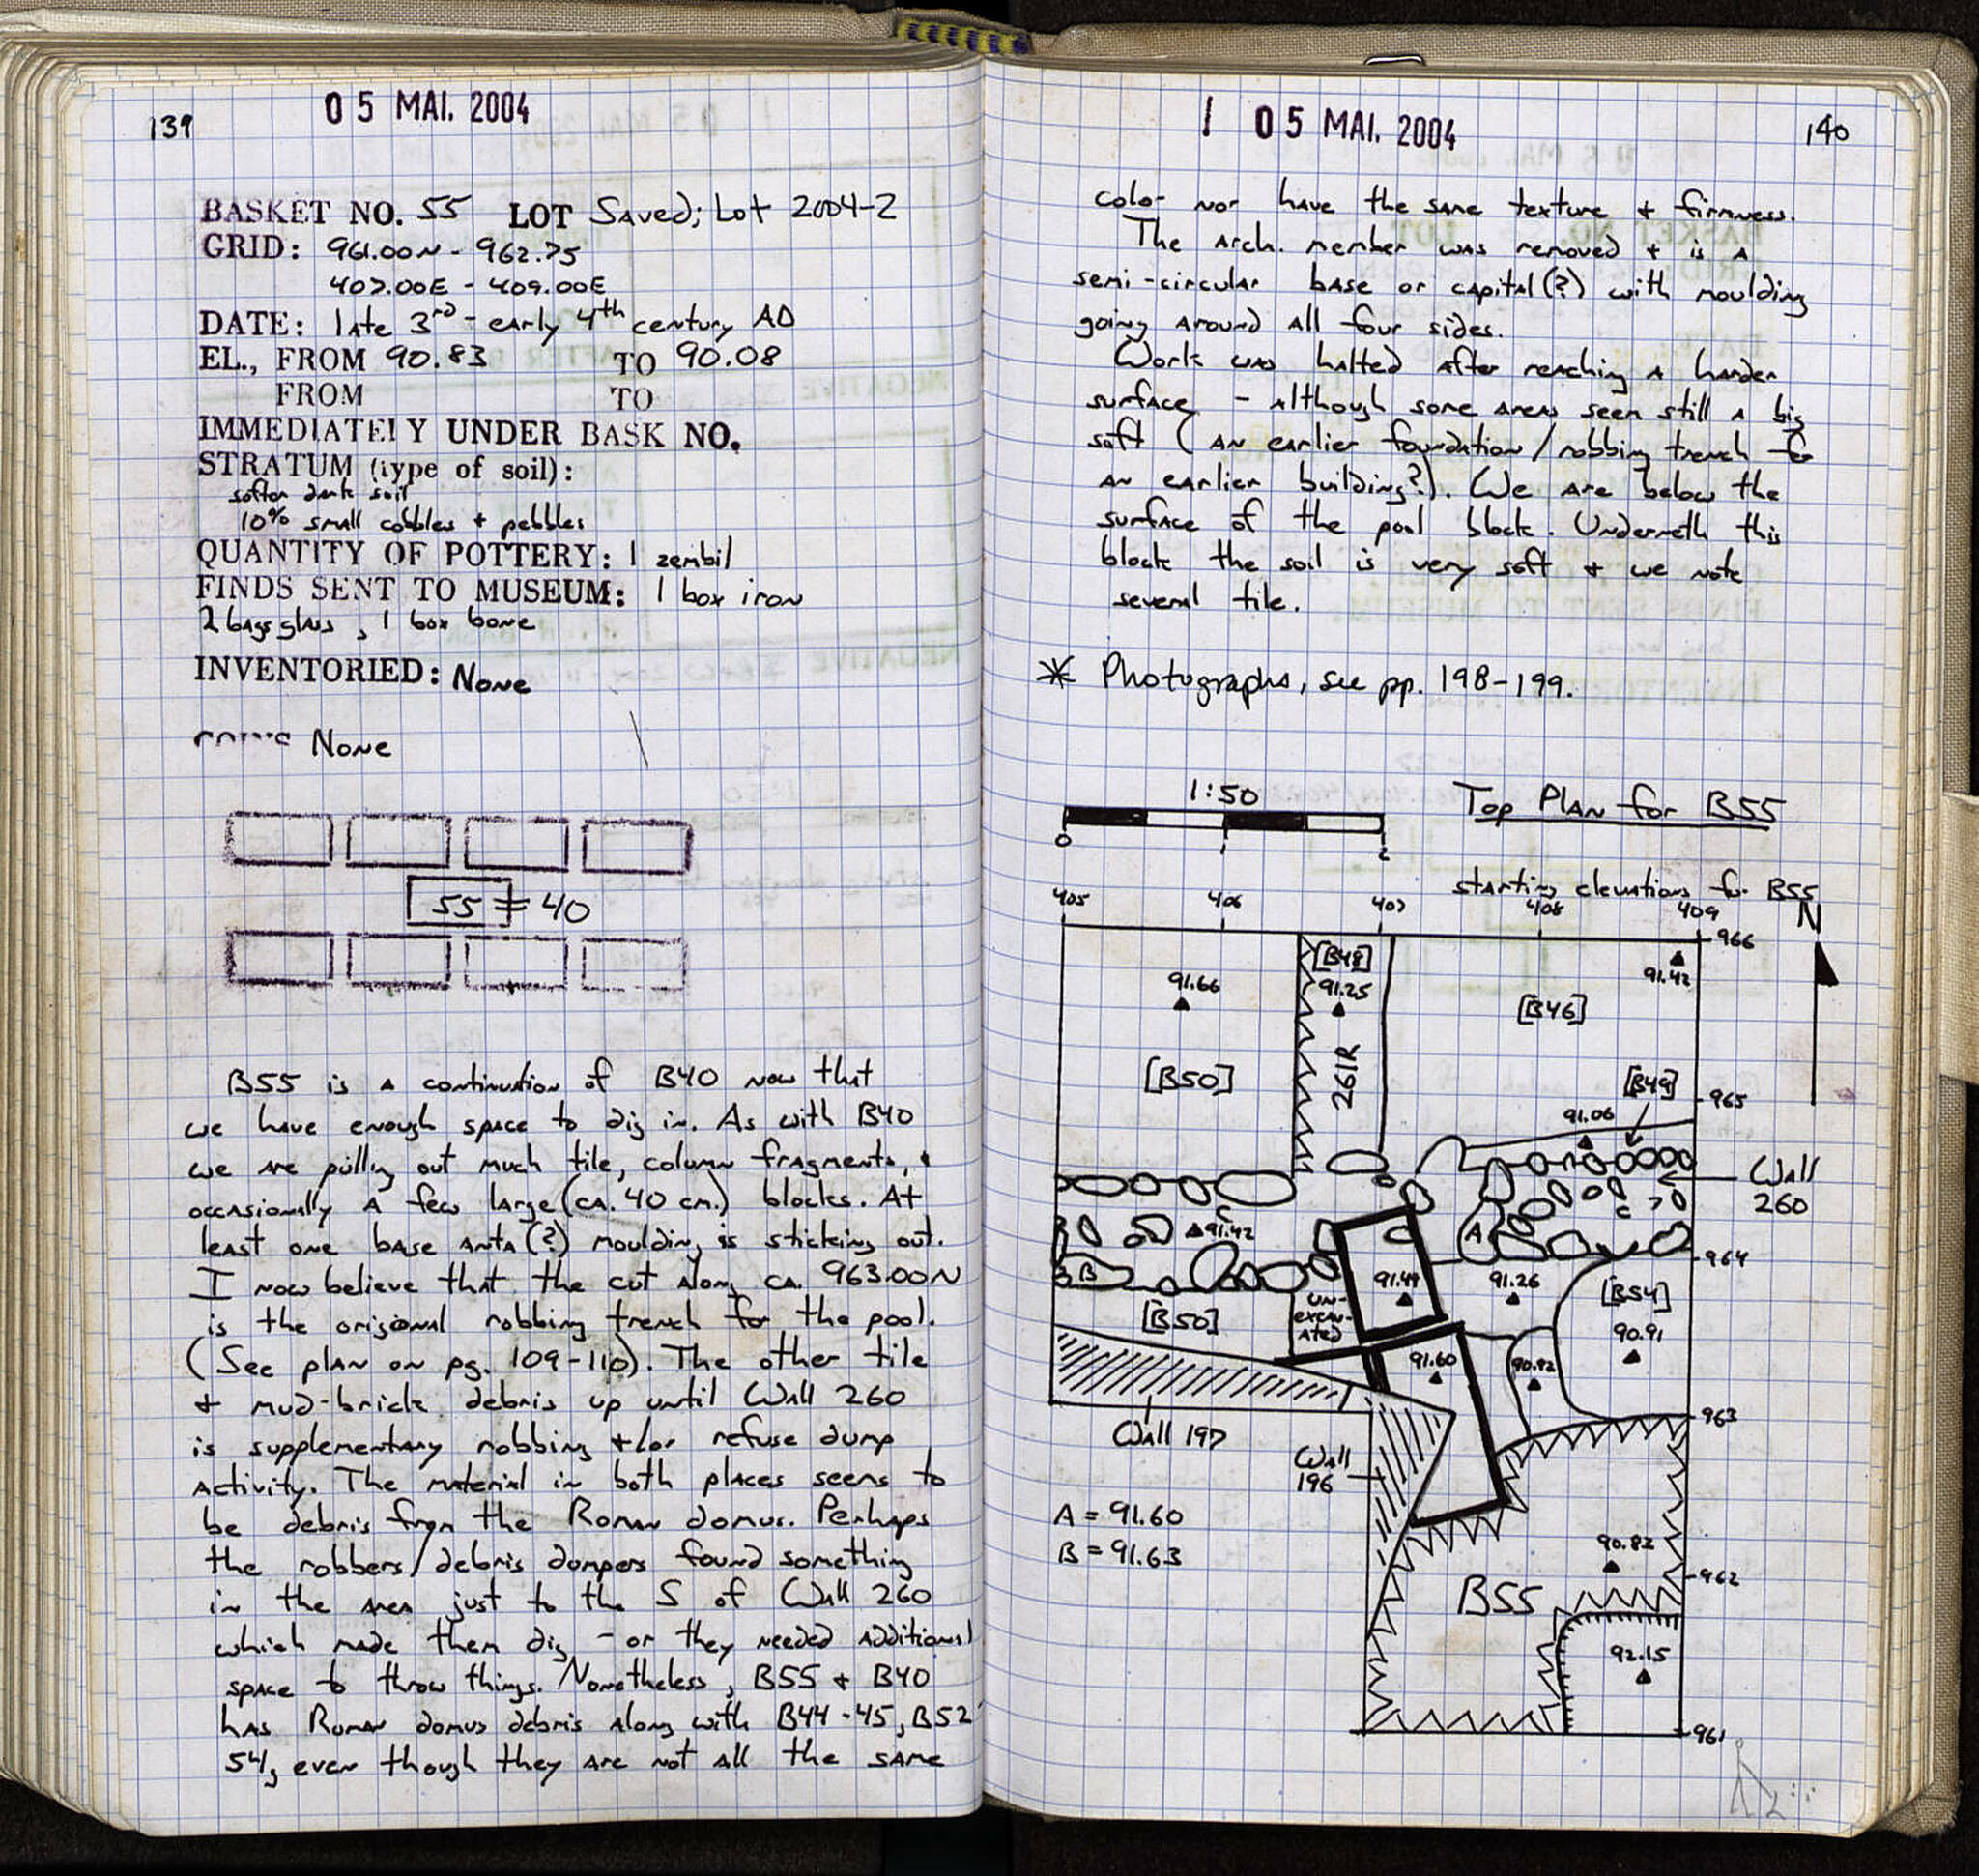 139
05 MAI. 2004
BASKET NO. 55 LOT Saved; Lot 2004-2
GRID: 961.00N - 962.75
407.00E - 409.00E
DATE: late 3rd - early 4th century AD
EL., FROM 90.83 TO 90.08
FROM TO
IMMEDIATELY UNDER BASK NO.
STRATUM (type of soil):
softer dark soil
10% small cobbles + pebbles
QUANTITY OF POTTERY: 1 zembil
FINDS SENT TO MUSEUM: 1 box iron
2 bags glass, 1 box bone
INVENTORIED: None
COINS None
55 = 40
B55 is a continuation of B40 now that
we have enough space to dig in. As with B40
we are pulling out much tile, column fragments, +
occasionally a few large (ca. 40 cm.) blocks. At
least one base anta (?) moulding is sticking out.
I now believe that the cut along ca. 963.00N
is the original robbing trench for the pool.
(See plan on pg. 109-110). The other tile
+ mud-brick debris up until Wall 260
is supplementary robbing +/or refuse dump
activity. The material in both places seems to
be debris from the Roman domus. Perhaps
the robbers/debris dumpers found something
in the area just to the S of Wall 260
which made them dig - or they needed additional
space to throw things. Nonetheless, B55 + B40
has Roman domus debris along with B44-45, B52
54, even though they are not all the same
1 05 MAI. 2004
140
color nor have the same texture + firmness.
The arch. member was removed + is a
semi-circular base or capital (?) with moulding
going around all four sides.
Work was halted after reaching a harder
surface - although some areas seem still a big
soft (an earlier foundation/robbing trench for
an earlier building?). We are below the
surface of the pool block. Underneth this
block the soil is very soft + we note
several tile.
* Photographs, see pp. 198-199.
1:50
0 1 2
Top Plan for B55
starting elevations for B55
405 406 407 408 409
N
966
[B48]
91.42
91.66
91.25
[B46]
261R
[B50]
[B49]
965
91.06
Wall
260
C
91.42
A
964
B
91.49
91.26
[B54]
un-
excav-
ated
[B50]
90.91
91.60
90.92
963
Wall 197
Wall
196
A = 91.60
B = 91.63
90.82
962
B55
92.15
961